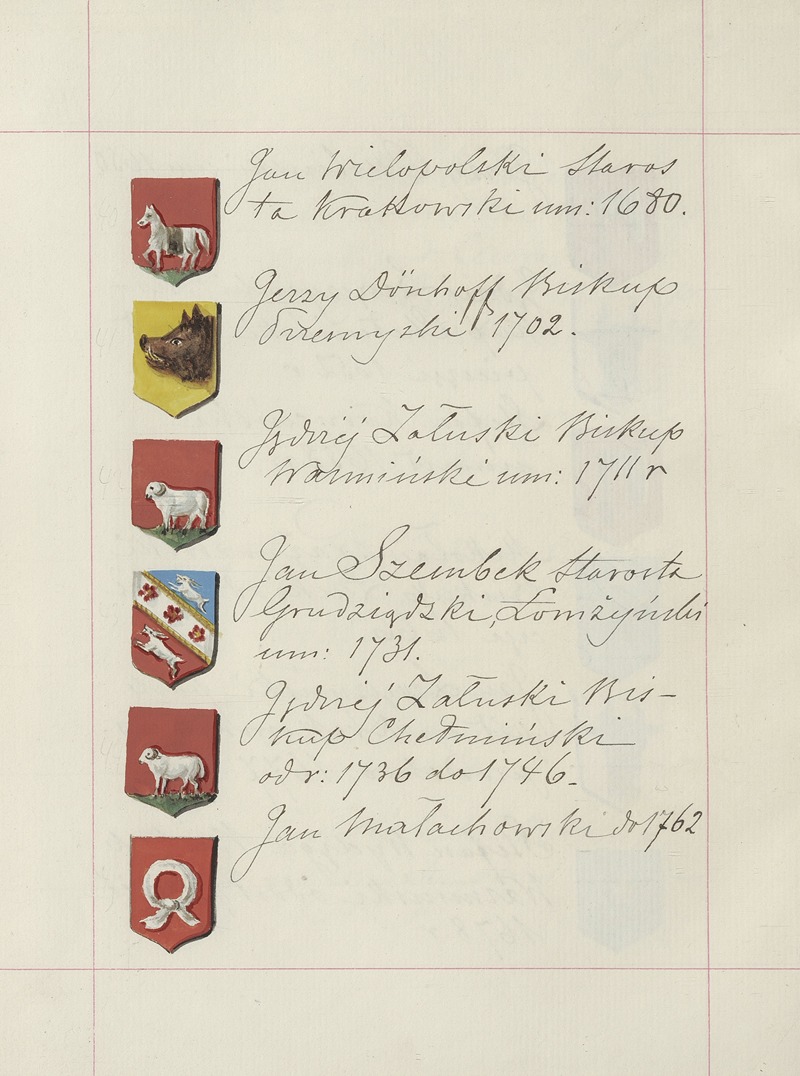 Jan Wielopolski Staros
ta Krakowski um: 1680.
Jerzy Dönhoff Biskup
Przemyski 1702.
Jędrzéj Załuski Biskup
Warmiński um: 1711 r
Jan Szembek Starosta
Grudziądzki, Łomżyński
um: 1731.
Jędrzéj Załuski Bis-
kup Chełmiński
od r: 1736 do 1746.
Jan Małachowski do 1762